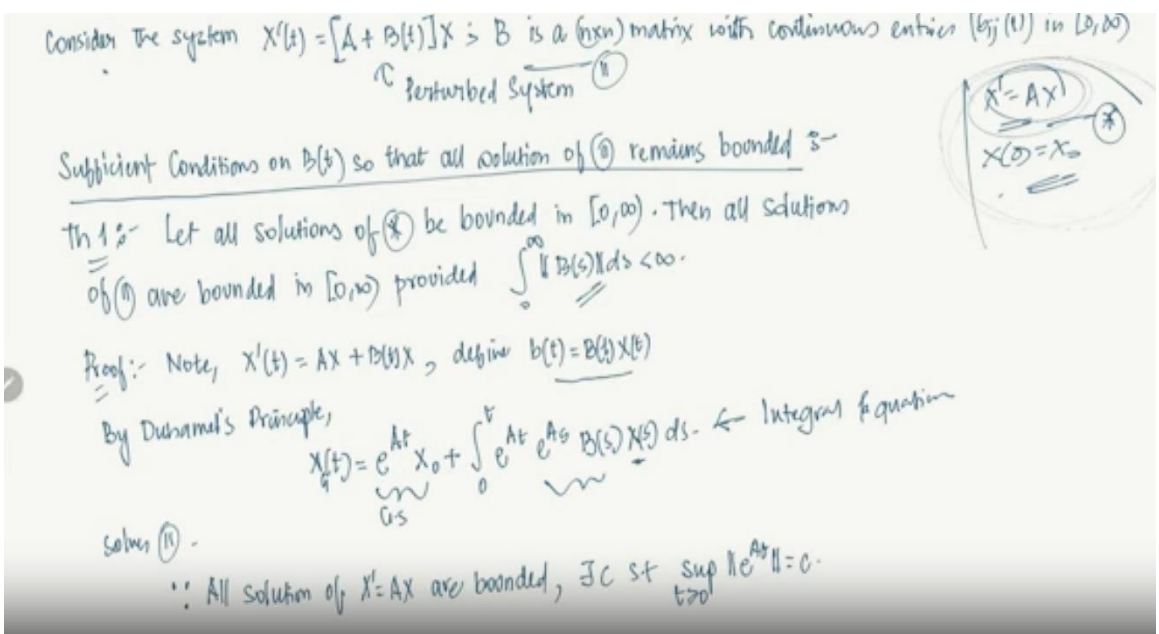 Consider the system X'(t) = [A + B(t)]X ; B is a (n×n) matrix with continuous entries (bij(t)) in [0,∞)
Perturbed System (11)
X' = AX
(*)
X(0) = X0
Sufficient Conditions on B(t) so that all solution of (11) remains bounded :-
Th 1 :- Let all solutions of (*) be bounded in [0,∞). Then all solutions
of (11) are bounded in [0,∞) provided ∫₀^∞ ||B(s)|| ds < ∞.
Proof :- Note, X'(t) = AX + B(t)X, define b(t) = B(t)X(t)
By Duhamel's Principle,
X(t) = e^{At} X0 + ∫₀^t e^{At} e^{As} B(s) X(s) ds. ← Integral Equation
C.S
Solves (11).
∵ All solution of X' = AX are bounded, ∃ C st sup_{t>0} ||e^{At}|| = c.